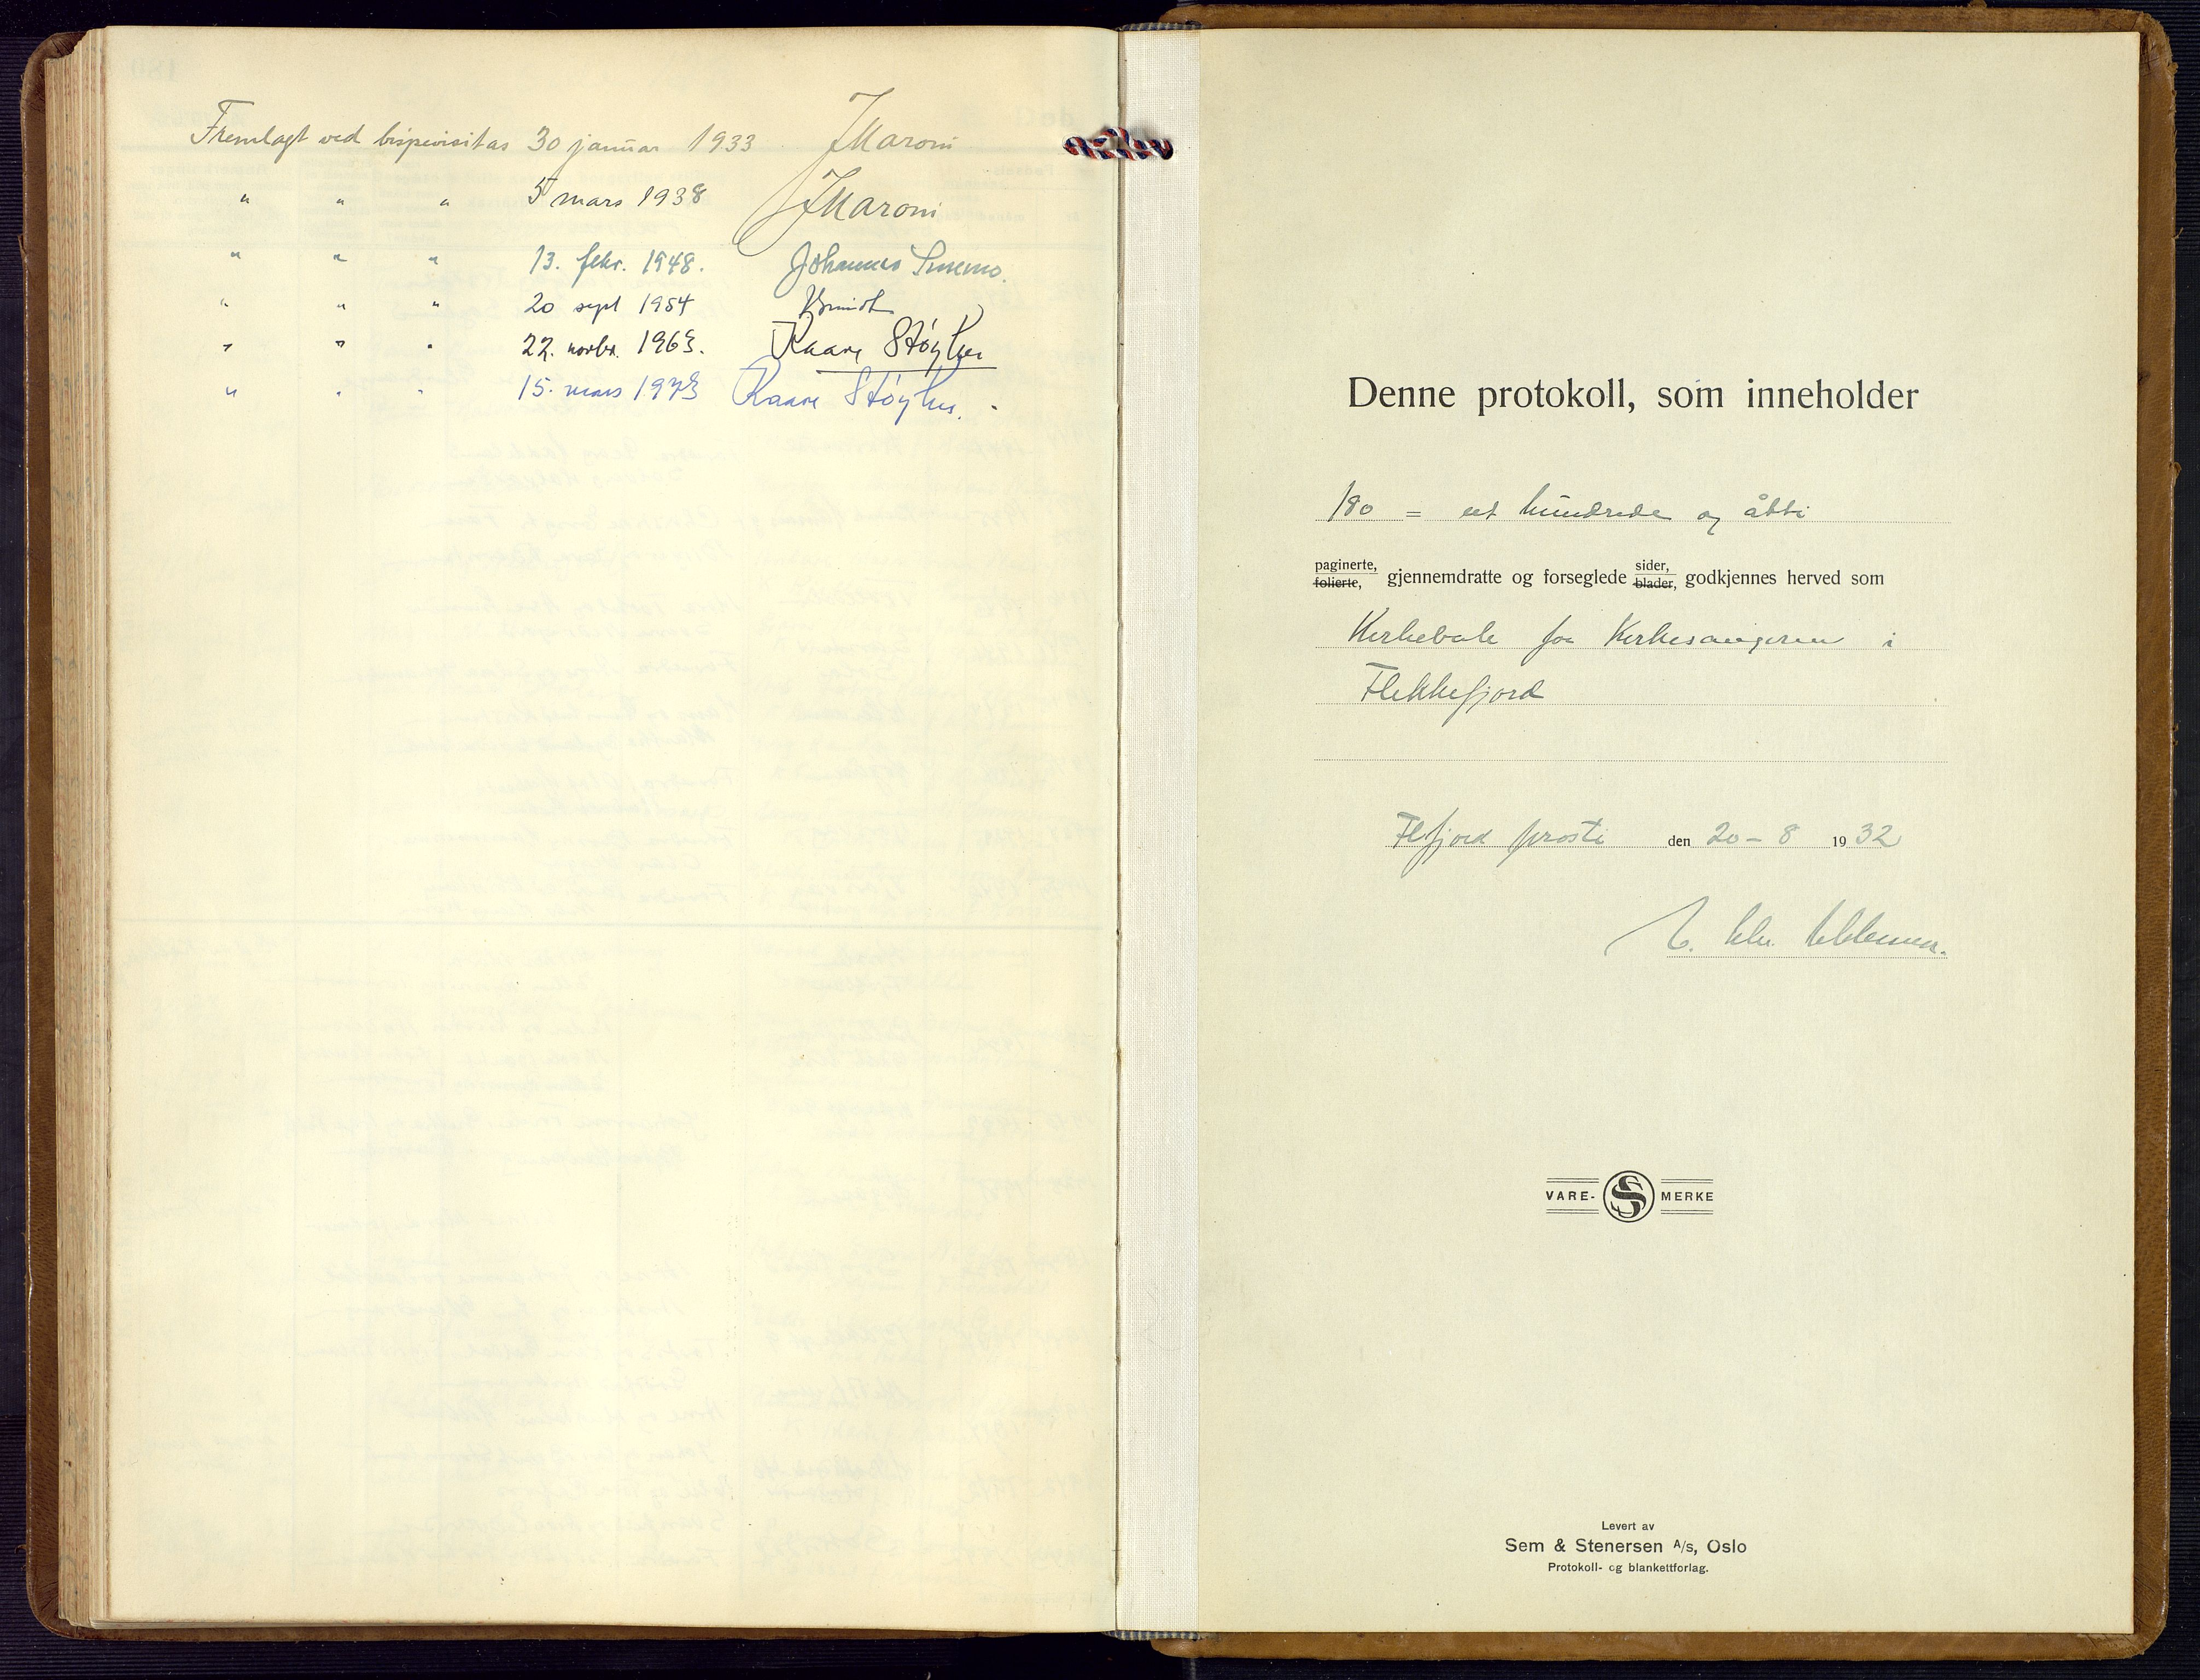 Fremlagt ved bispevisitas 30 januar 1933 JMaroni
" " " 5 mars 1938 JMaroni
" " " 13. febr. 1948. Johannes Smemo.
" " " 20 sept 1954
" " " 22. novbr. 1963. Kaare Støylen
" " " 15. mars 1973 Kaare Støylen.
Denne protokoll, som inneholder
180 = ett hundrede og åtti
paginerte, sider,
folierte, gjennemdratte og forseglede blader, godkjennes herved som
Kirkebok for Kirkesangeren i
Flekkefjord
Flfjord prosti den 20-8 1932
VARE- S MERKE
Levert av
Sem & Stenersen A/s, Oslo
Protokoll- og blankettforlag.